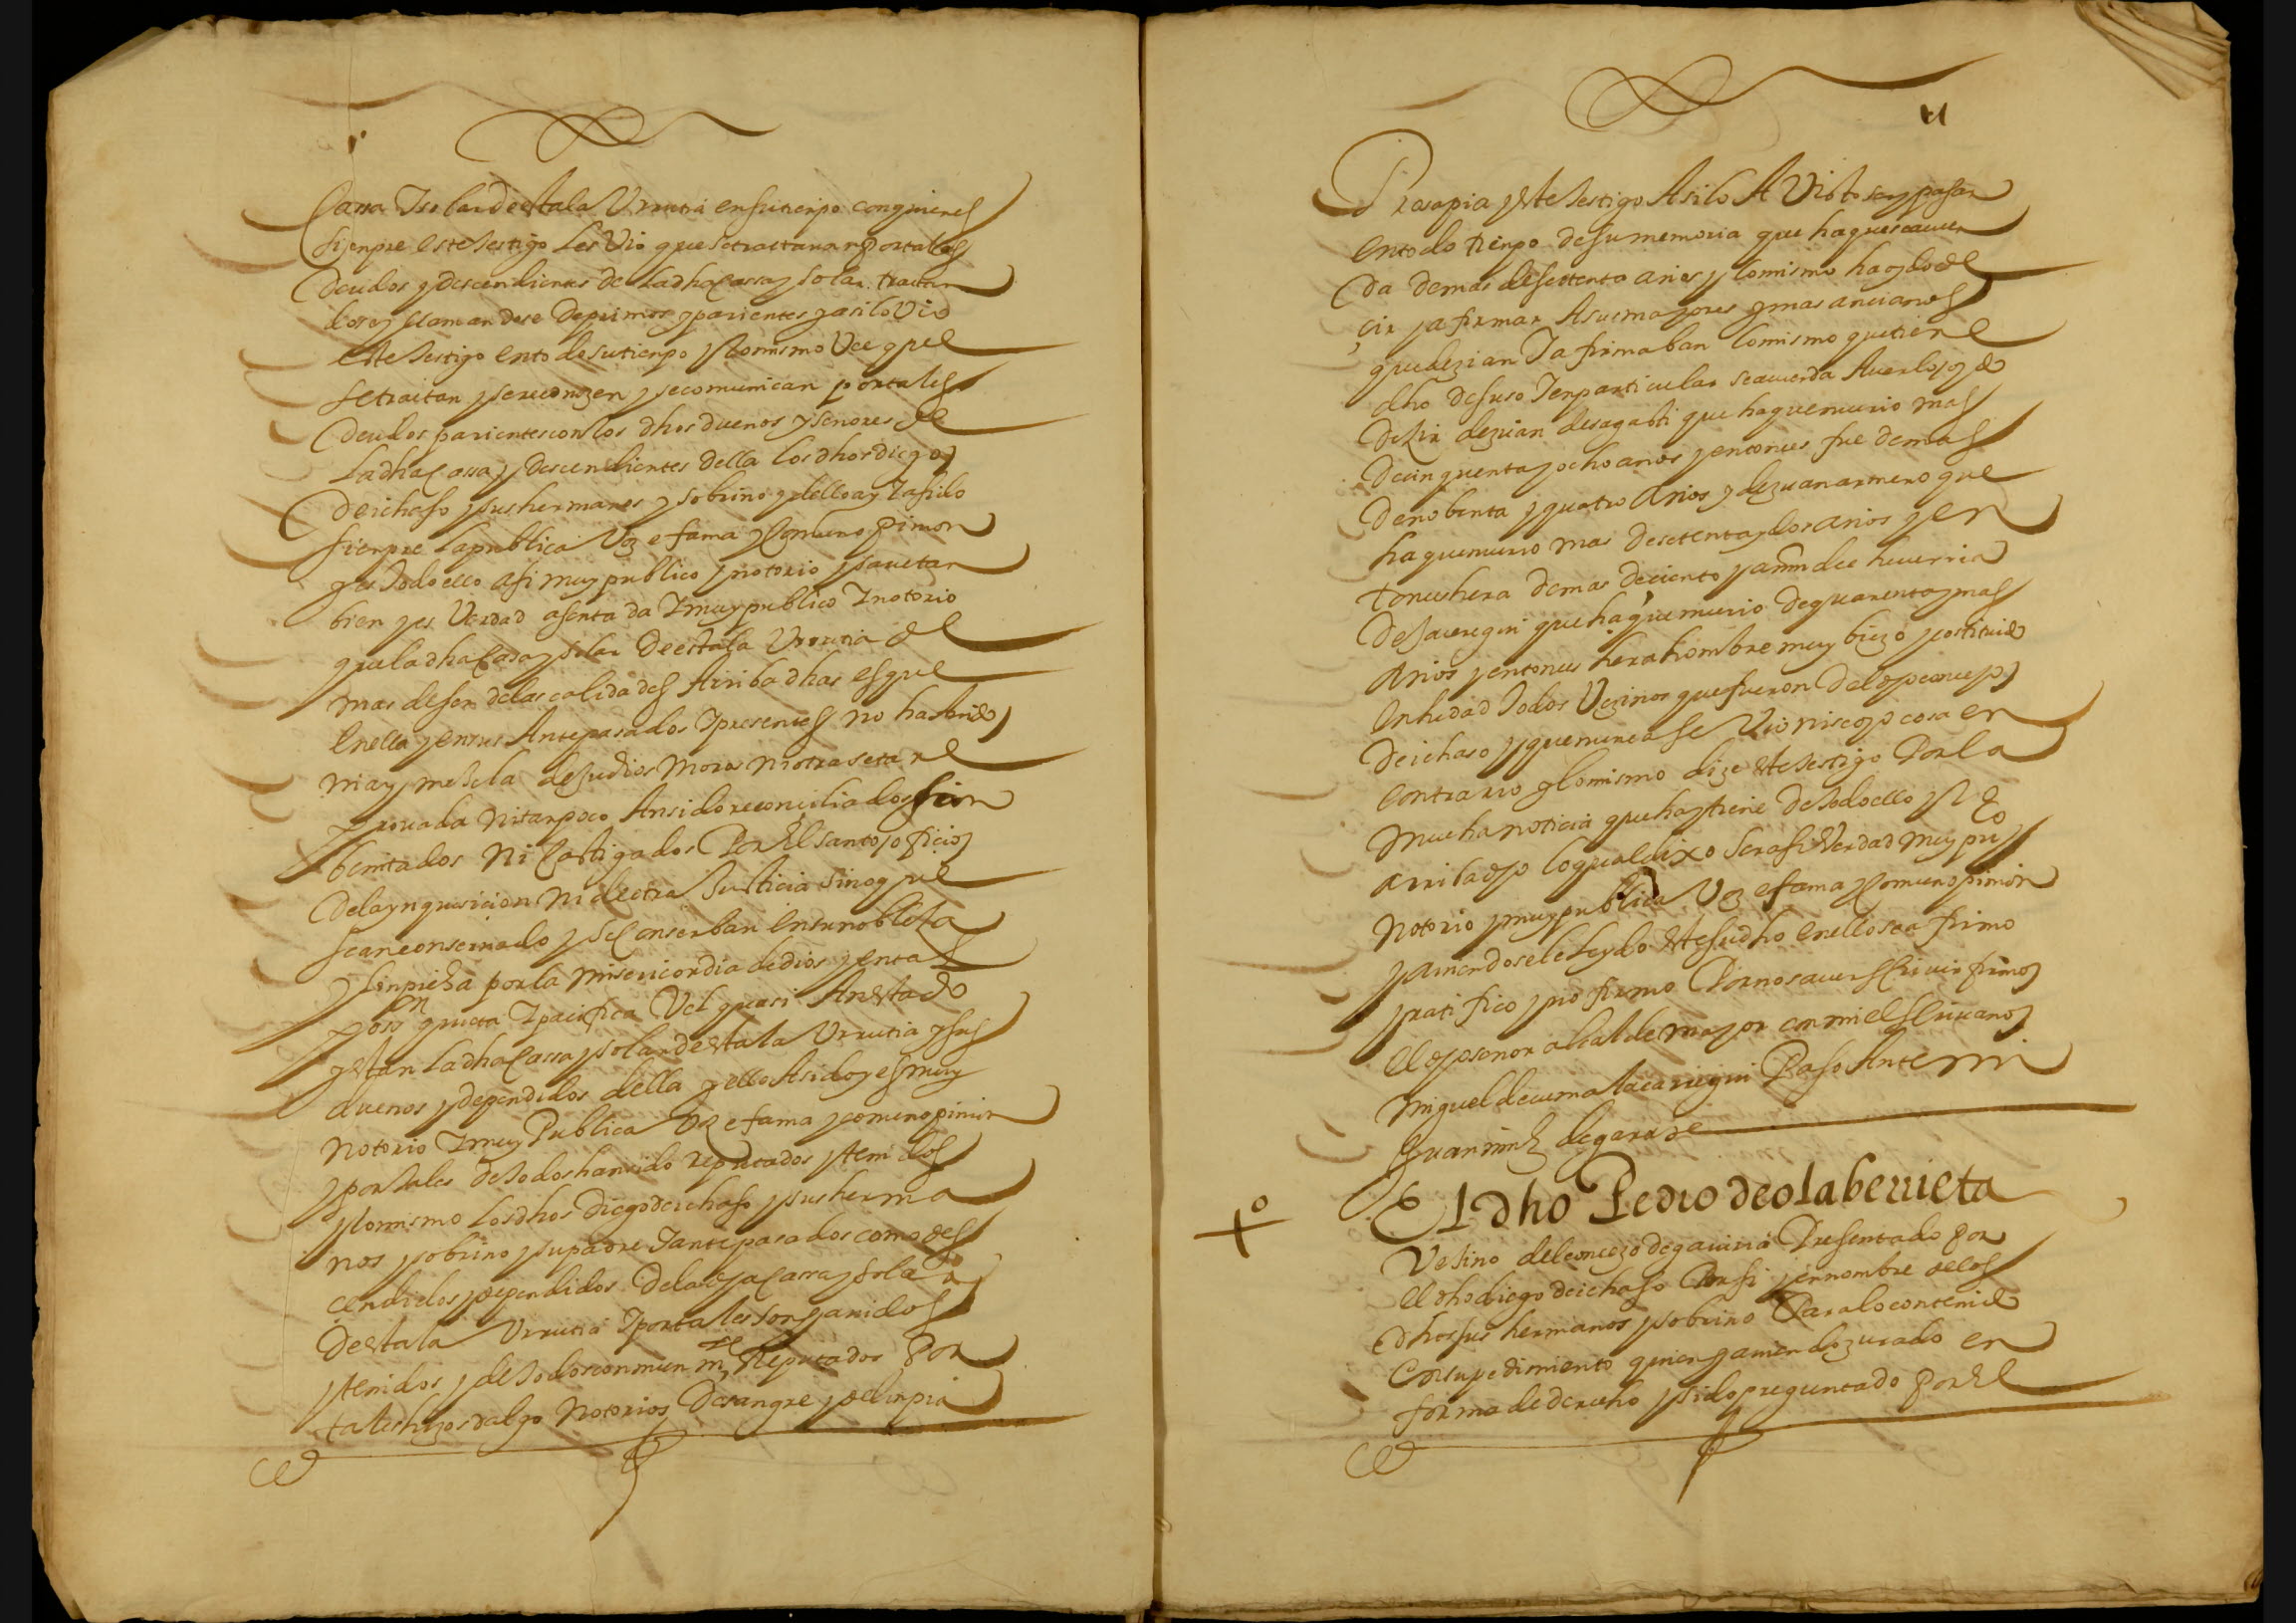 Cassa Isolar de estala Vrrutia en su tienpo con quienes
sienpre este testigo les Vio que se trattauan por tales
deudos y descendientes de la dha Cassa y solar trattan
dose y llamandose de primos y parientes y asi lo Vio
este testigo en todo su tienpo y lo mismo Vee que
se tractan y se reconozen y se comunican por tales
deudos parientes con los dhos duenos y senores de
la dha Cassa y descendientes della los dhos diego
de ichaso y sus hermanos y sobrino y dello ay I a sido
sienpre la publica Voz e fama y Comun opinion
y es todo ello asi muy publico y notorio y sauetan
bien y es Verdad asentada I muy publico I notorio
que la dha Casa y solar de estala Vrrutia de
mas de ser de las calidades Arriba dhas es que
en ella y en sus Antepasados I presentes no ha abido
ni ay mezcla de Judios Moros ni otra seta re
prouada ni tanpoco An sido reconciliados san
benitados ni Castigados Por El santo oficio
de la ynquisicion ni de otra Justicia sino que
se an conseruado y se Conserban en su nobleza
y linpieza por la misericordia de dios y en tal
poson quieta I pacifica Vel quasi An estado
y estan la dha Cassa y solar de estala Vrrutia y sus
duenos y dependidos della y ello A sido y es muy
notorio I muy Publica Voz e fama y comun opinion
y por tales de todos han sido reputados y tenidos
y lo mismo los dhos diego de ichaso y sus herma
nos y sobrino y su padre I antepasados como des
cendidos y dependidos de la dha Cassa y solar
de estala Vrrutia I por tales son y an sidos
y tenidos y de todos conmun mte Reputados Por
tales hijosdalgo notorios de sangre y de linpia
Prosapia y este testigo Asi lo A Visto ser y pasar
en todo tienpo de su memoria que ha que se acuer
da de mas de settenta anos y lo mismo ha oydo de
cir y afirmar A sus mayores y mas ancianos
que dezian I afirmaban lo mismo que tiene
dho de suso I en particular se acuerda Auerlo oydo
dezir de Juan de sagasti que ha que murio mas
de cinquenta y ocho anos y entonces fue de mas
de nobenta y quatro anos y de Juan armero que
ha que murio mas de setenta y dos anos y en
tonces hera de mas de ciento y a mn de heuerria
de Jauregui que ha que murio de quarenta y mas
anos y entonces hera hombre muy biezo y costituido
en hedad todos Vezinos que fueron del dho concejo
de ichaso y que nunca se Vio ni se oyo cosa en
contrario y lo mismo dize este testigo Por la
mucha noticia que ha y tiene de todo ello
arriba dho lo qual dixo ser asi Verdad muy puco
notorio y muy publica Voz e fama y Comun opinion
y auiendosele leydo este su dho en ello se a firmo
y ratifico y no firmo Por no sauer escriuir firmo
el dho senor alcalde mayor con mi el escriuano
Miguel de cumalacarregui Paso Ante mi
Juan minz de garaze
El dho Pedro de olaberrieta
Vezino del concejo de gauiria Presentado Por
el dho diego de ichaso Por si y en nombre de los
dhos sus hermanos y sobrino Para lo contenido
en su pedimiento quien hauiendo jurado en
forma de derecho y sido preguntado Por El